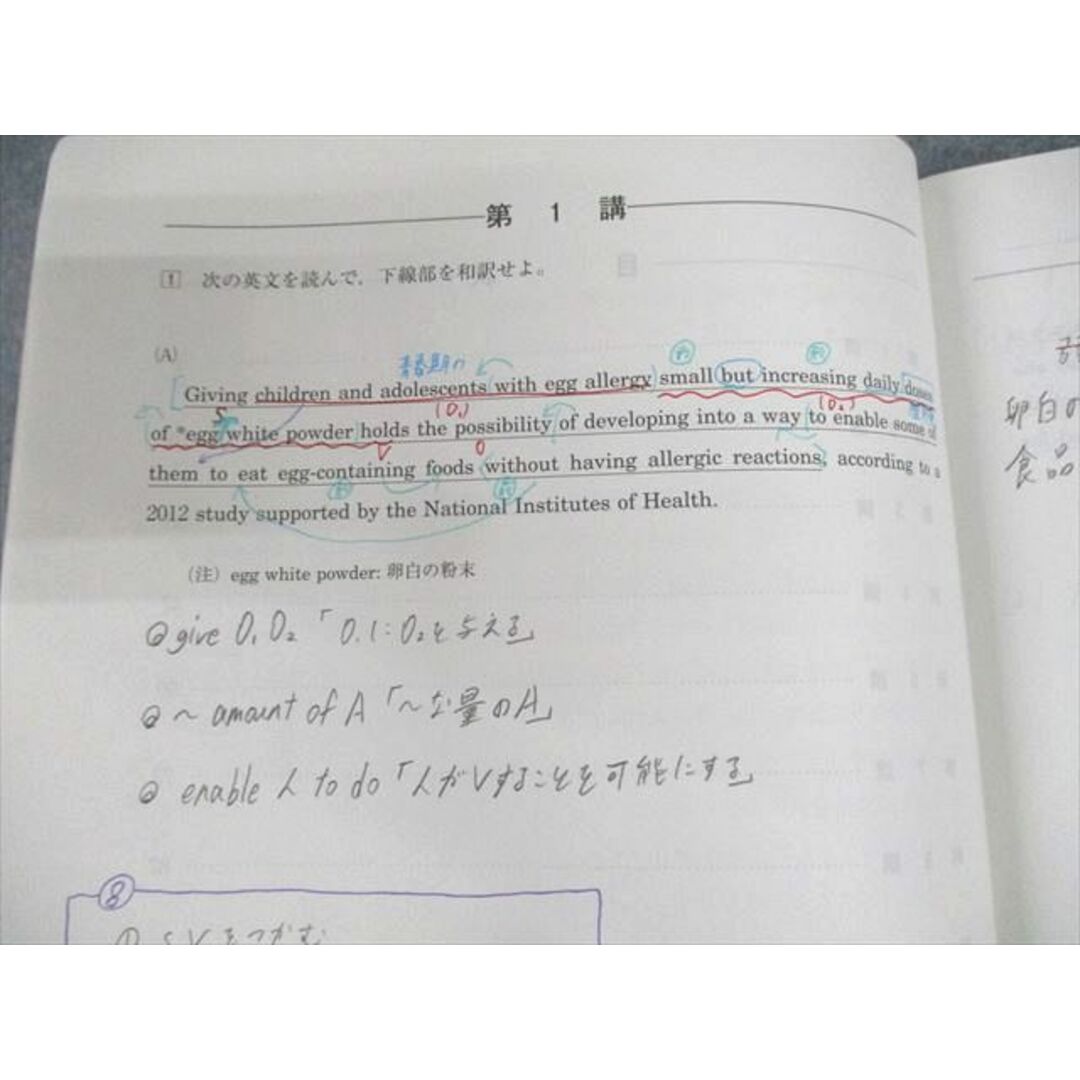 第 1 講
1 次の英文を読んで，下線部を和訳せよ。
(A)
青春期の
Giving children and adolescents with egg allergy small but increasing daily doses
S (O₁) (O₂)
of *egg white powder holds the possibility of developing into a way to enable some of
V O
them to eat egg-containing foods without having allergic reactions, according to a
2012 study supported by the National Institutes of Health.
(注) egg white powder: 卵白の粉末
give O₁ O₂ 「O.1:O₂を与える」
～ amount of A 「～な量のA」
enable 人 to do 「人がVすることを可能にする」
⑧
① S Vをつかむ
卵白の
食品